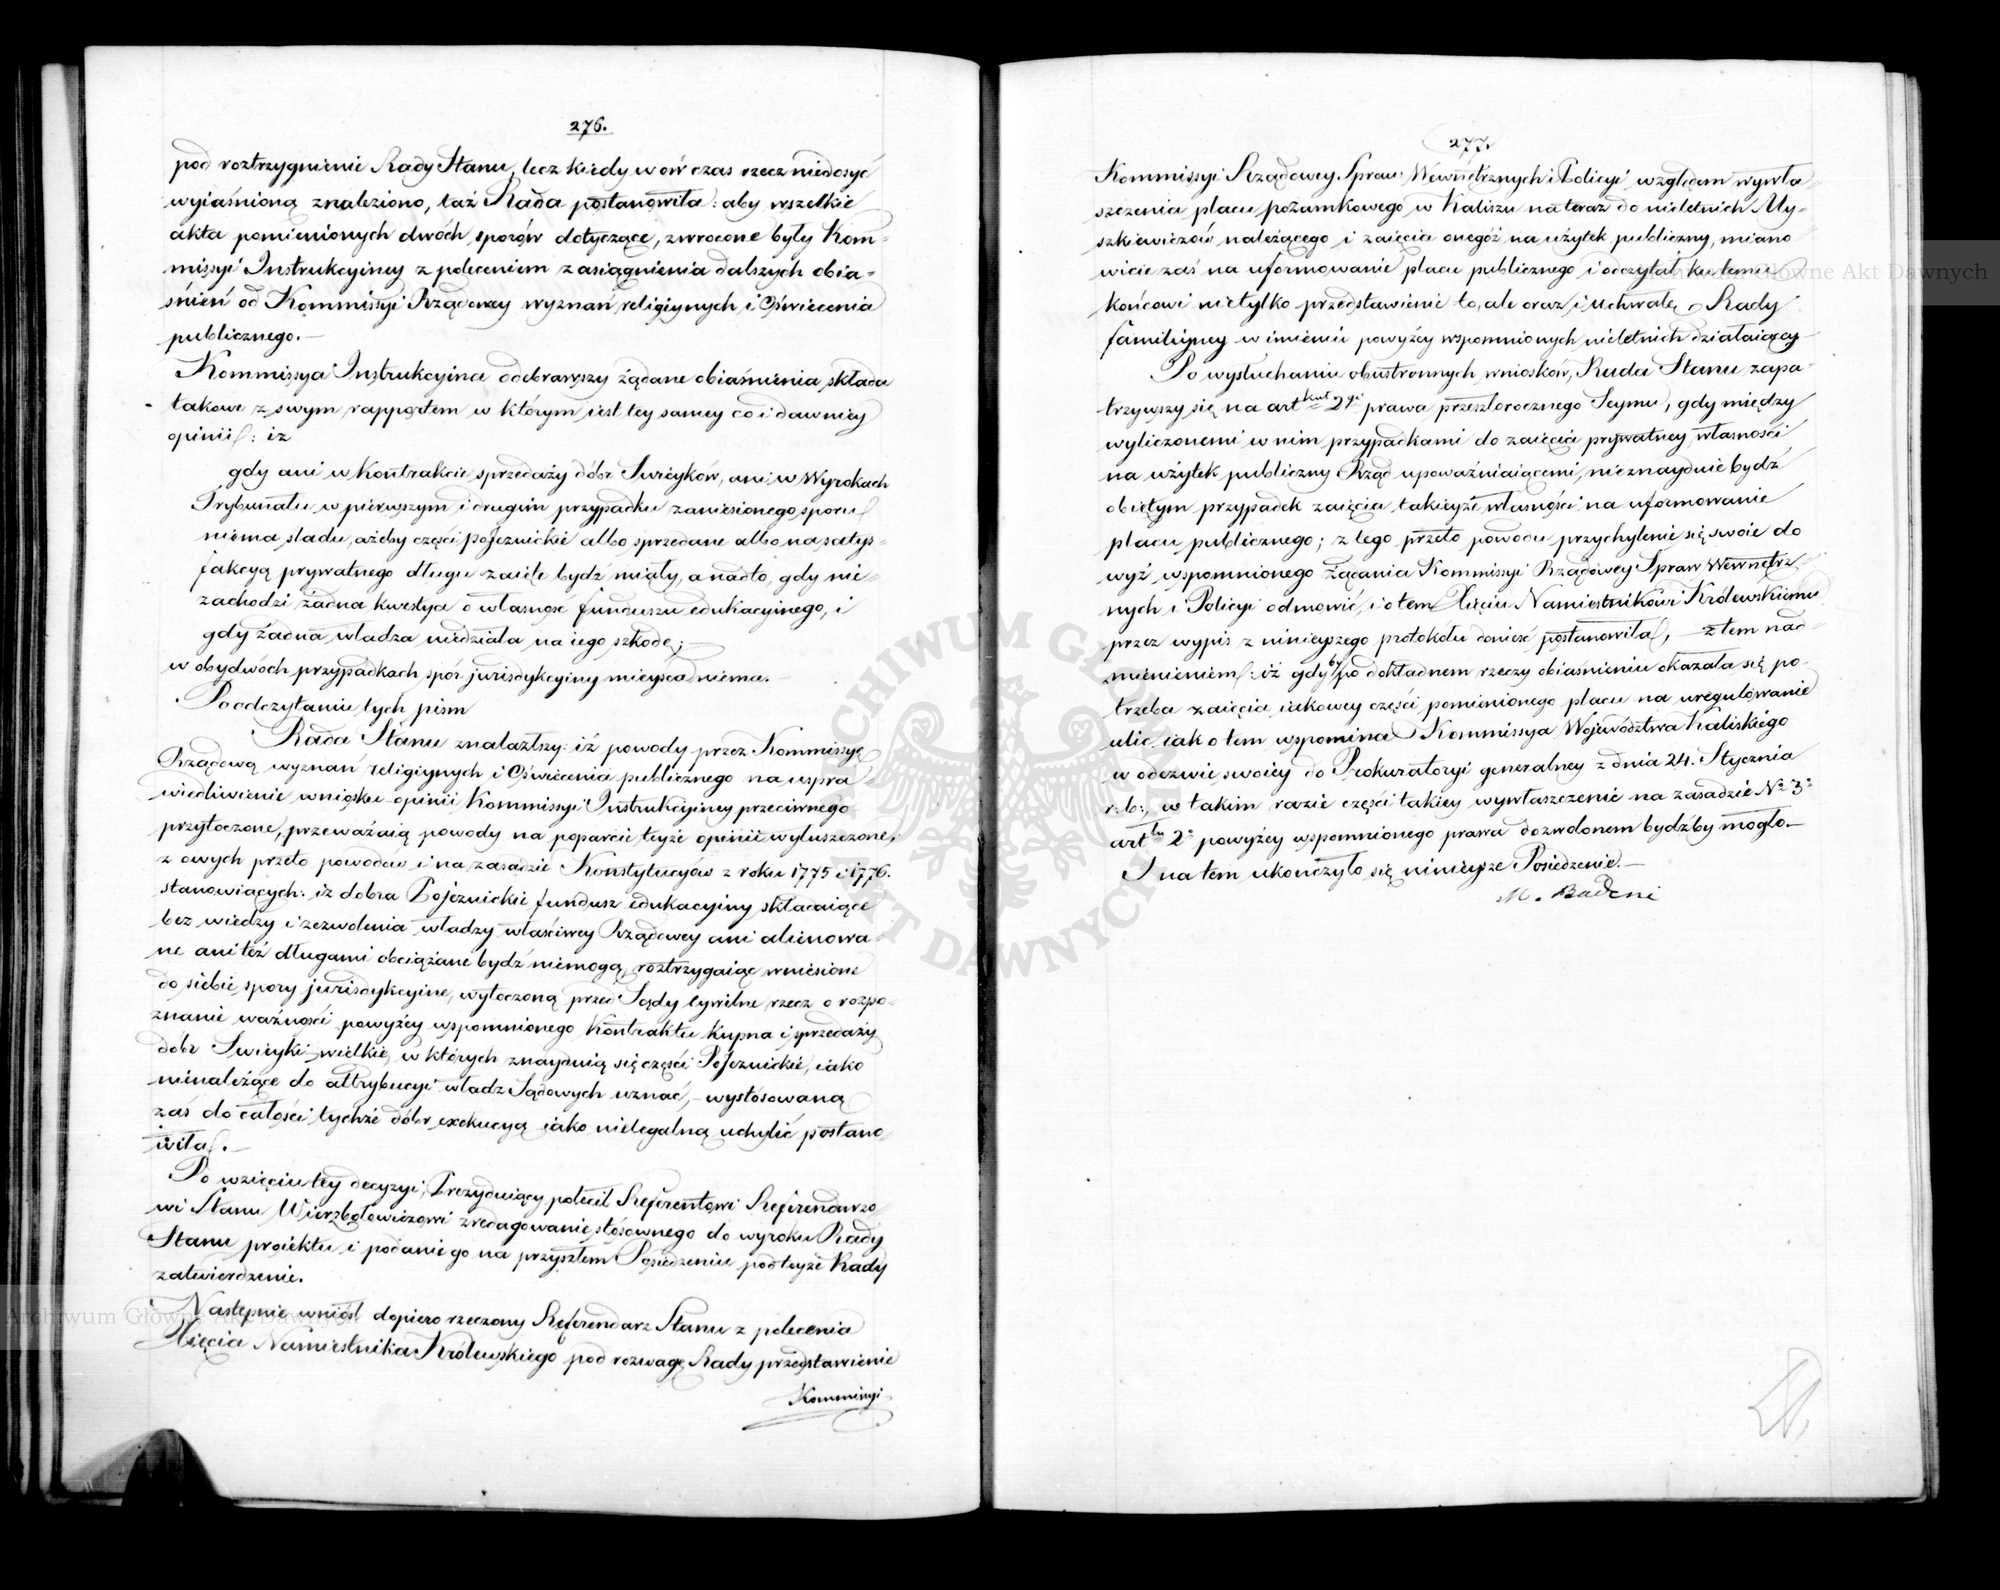 276.
pod roztrzygnienie Rady Stanu, lecz kiedy wowczas rzecz niedosyć
wyiaśnioną znaleziono, taż Rada postanowiła: aby wszelkie
akta pomienionych dwóch sporów dotyczące, zwrocone były Kom-
missyi Instrukcyiney z poleceniem zasiągnienia dalszych obia-
śnień od Kommissyi Rządowey wyznań religiynych i Oświecenia
publicznego.—
Kommissya Instrukcyina odebrawszy żądane obiaśnienia składa
takowe z swym rapportem w którym iest tey samey co i dawniey
opinii: iz
gdy ani w Kontrakcie sprzedaży dóbr Swieyków, ani w Wyrokach
Trybunału w pierwszym i drugim przypadku zaniesionego sporu
niema sladu, ażeby części pojezuickie albo sprzedane albo na satys-
fakcyą prywatnego długu zaięte bydź miały, a nadto, gdy nie-
zachodzi żadna kwestya o własność funduszu edukacyinego, i
gdy żadna władza niedziała na iego szkodę;—
w obydwóch przypadkach spór jurisdykcyiny mieysca niema.—
Po odczytaniu tych pism
Rada Stanu znalazłszy: iż powody przez Kommissyę
Rządową wyznań religiynych i Oświecenia publicznego na uspra-
wiedliwienie wniosku opinii Kommissyi Instrukcyiney przeciwnego
przytoczone, przeważaią powody na poparcie teyże opinii wyłuszczone,
z owych przeto powodów i na zasadzie Konstytucyów z roku 1775 i 1776.
stanowiących: iz dobra Pojezuickie fundusz edukacyiny składaiące
bez wiedzy i zezwolenia władzy właściwey Rządowey ani alienowa-
ne ani też długami obciążane bydź niemogą, roztrzygaiąc wniesione
do siebie spory jurisdykcyine, wytoczoną przed Sądy cywilne rzecz o rozpo-
znanie ważności powyżey wspomnionego Kontraktu kupna i sprzedaży
dóbr Swieyki wielkie, w których znayduią się części Pojezuickie, iako
nienależące do attrybucyi władz Sądowych uznać,— wystósowaną
zaś do całości tychże dóbr exekucyą iako nielegalną uchylić postano-
wiła.—
Po wzięciu tey decyzyi, Prezyduiący polecił Referentowi Referendarzo-
wi Stanu Wierzbołowiczowi zredagowanie stósownego do wyroku Rady
Stanu proiektu i podanie go na przyszłem Posiedzeniu pod teyże Rady
zatwierdzenie.
Następnie wniósł dopiero rzeczony Referendarz Stanu z polecenia
Xięcia Namiestnika Królewskiego pod rozwagę Rady przedstawienie
Kommissyi
277.
Kommissyi Rządowey Spraw Wewnętrznych i Policyi względem wywła-
szczenia placu pozamkowego w Kaliszu na teraz do nieletnich My-
szkiewiczów należącego i zaięcia onegóż na użytek publiczny, miano-
wicie zaś na uformowanie placu publicznego i odczytał ku temu
końcowi nietylko przedstawienie to, ale oraz i uchwałę Rady
familiyney w imieniu powyżey wspomnionych nieletnich działaiącey
Po wysłuchaniu obustronnych wniosków, Rada Stanu zapa-
trzywszy się na artkuł 2gi prawa przeszłorocznego Seymu, gdy między
wyliczonemi w nim przypadkami do zaięcia prywatney własności
na użytek publiczny Rząd upoważniaiącemi, nieznayduie bydź
obiętym przypadek zaięcia takieyże własności na uformowanie
placu publicznego; z tego przeto powodu przychylenie się swoie do
wyż wspomnionego żądania Kommissyi Rządowey Spraw Wewnętrz-
nych i Policyi odmowić, i o tem Xięciu Namiestnikowi Królewskiemu
przez wypis z ninieyszego protokółu donieść postanowiła,— z tem nad-
mienieniem: iż gdyby po dokładnem rzeczy obiaśnieniu okazała się po-
trzeba zaięcia iakowey części pomienionego placu na uregulowanie
ulic iak o tem wspomina Kommissya Województwa Kaliskiego
w odezwie swoiey do Prokuratoryi generalney z dnia 24. Stycznia
r. b., w takim razie części takiey wywłaszczenie na zasadzie No 3o
artłu 2o powyżey wspomnionego prawa dozwolonem bydźby mogło.—
I na tem ukończyło się ninieysze Posiedzenie.—
M. Badeni
ARCHIWUM GŁÓWNE AKT DAWNYCH
Archiwum Główne Akt Dawnych
Archiwum Główne Akt Dawnych